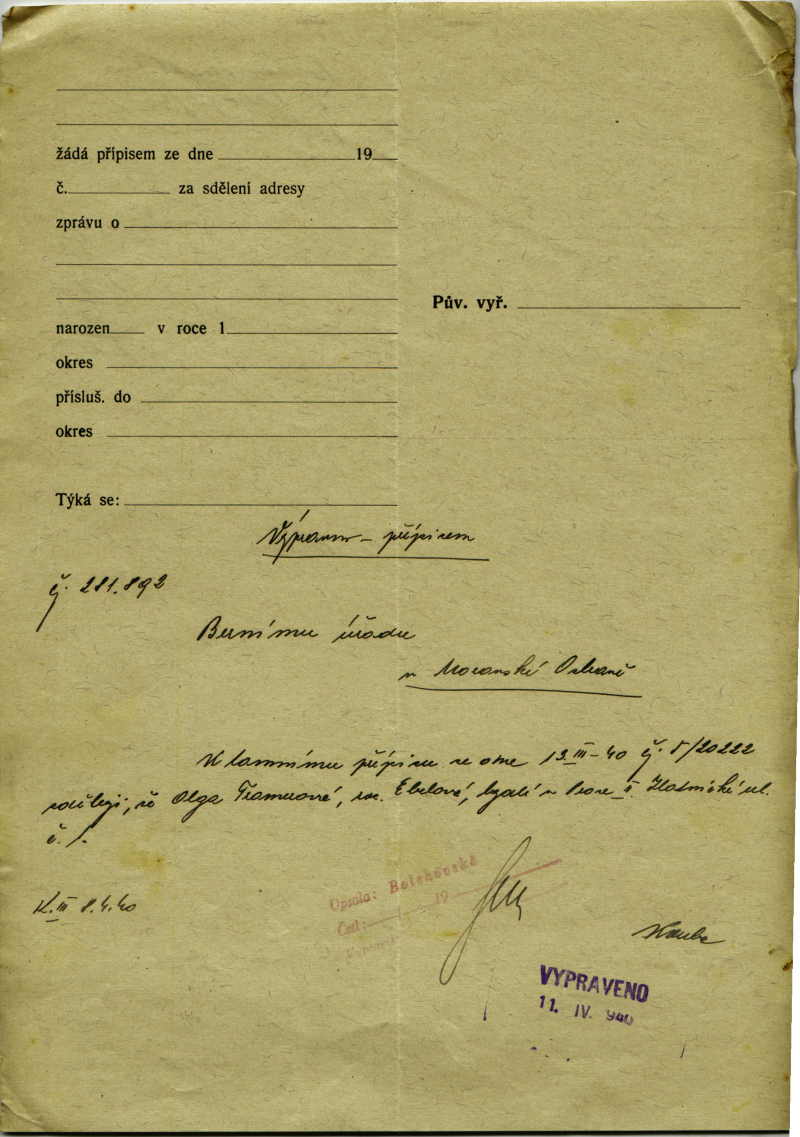 žádá přípisem ze dne 19
č. za sdělení adresy
zprávu o
Pův. vyř.
narozen v roce 1
okres
přísluš. do
okres
Týká se:
přípisem
č. 281.892
Bernímu úřadu
v Moravské Ostravě
K tamnímu přípisu ze dne 13.III-40 č. 5/20222
sděluji, že Olga roz. Ebelová, bydlí v Praze II. ul.
č. 1.
Opsala:
Četl: 19
K.III 8.4.40
VYPRAVENO
11. IV. 940